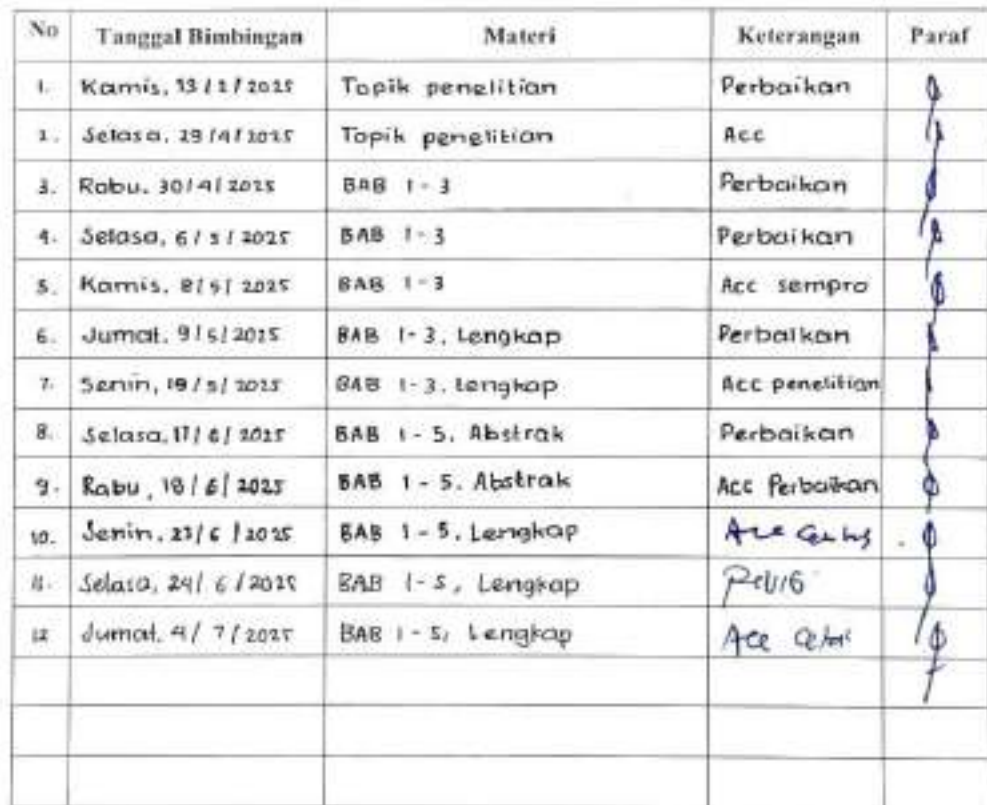 No Tanggal Bimbingan Materi Keterangan Paraf
1. Kamis, 13/2/2025 Topik penelitian Perbaikan
2. Selasa, 29/4/2025 Topik penelitian Acc
3. Rabu, 30/4/2025 BAB 1-3 Perbaikan
4. Selasa, 6/5/2025 BAB 1-3 Perbaikan
5. Kamis, 8/5/2025 BAB 1-3 Acc sempro
6. Jumat, 9/5/2025 BAB 1-3, Lengkap Perbaikan
7. Senin, 19/5/2025 BAB 1-3, Lengkap Acc penelitian
8. Selasa, 17/6/2025 BAB 1-5, Abstrak Perbaikan
9. Rabu, 18/6/2025 BAB 1-5, Abstrak Acc Perbaikan
10. Senin, 23/6/2025 BAB 1-5, Lengkap Acc
11. Selasa, 24/6/2025 BAB 1-5, Lengkap
12 Jumat, 4/7/2025 BAB 1-5, Lengkap Acc